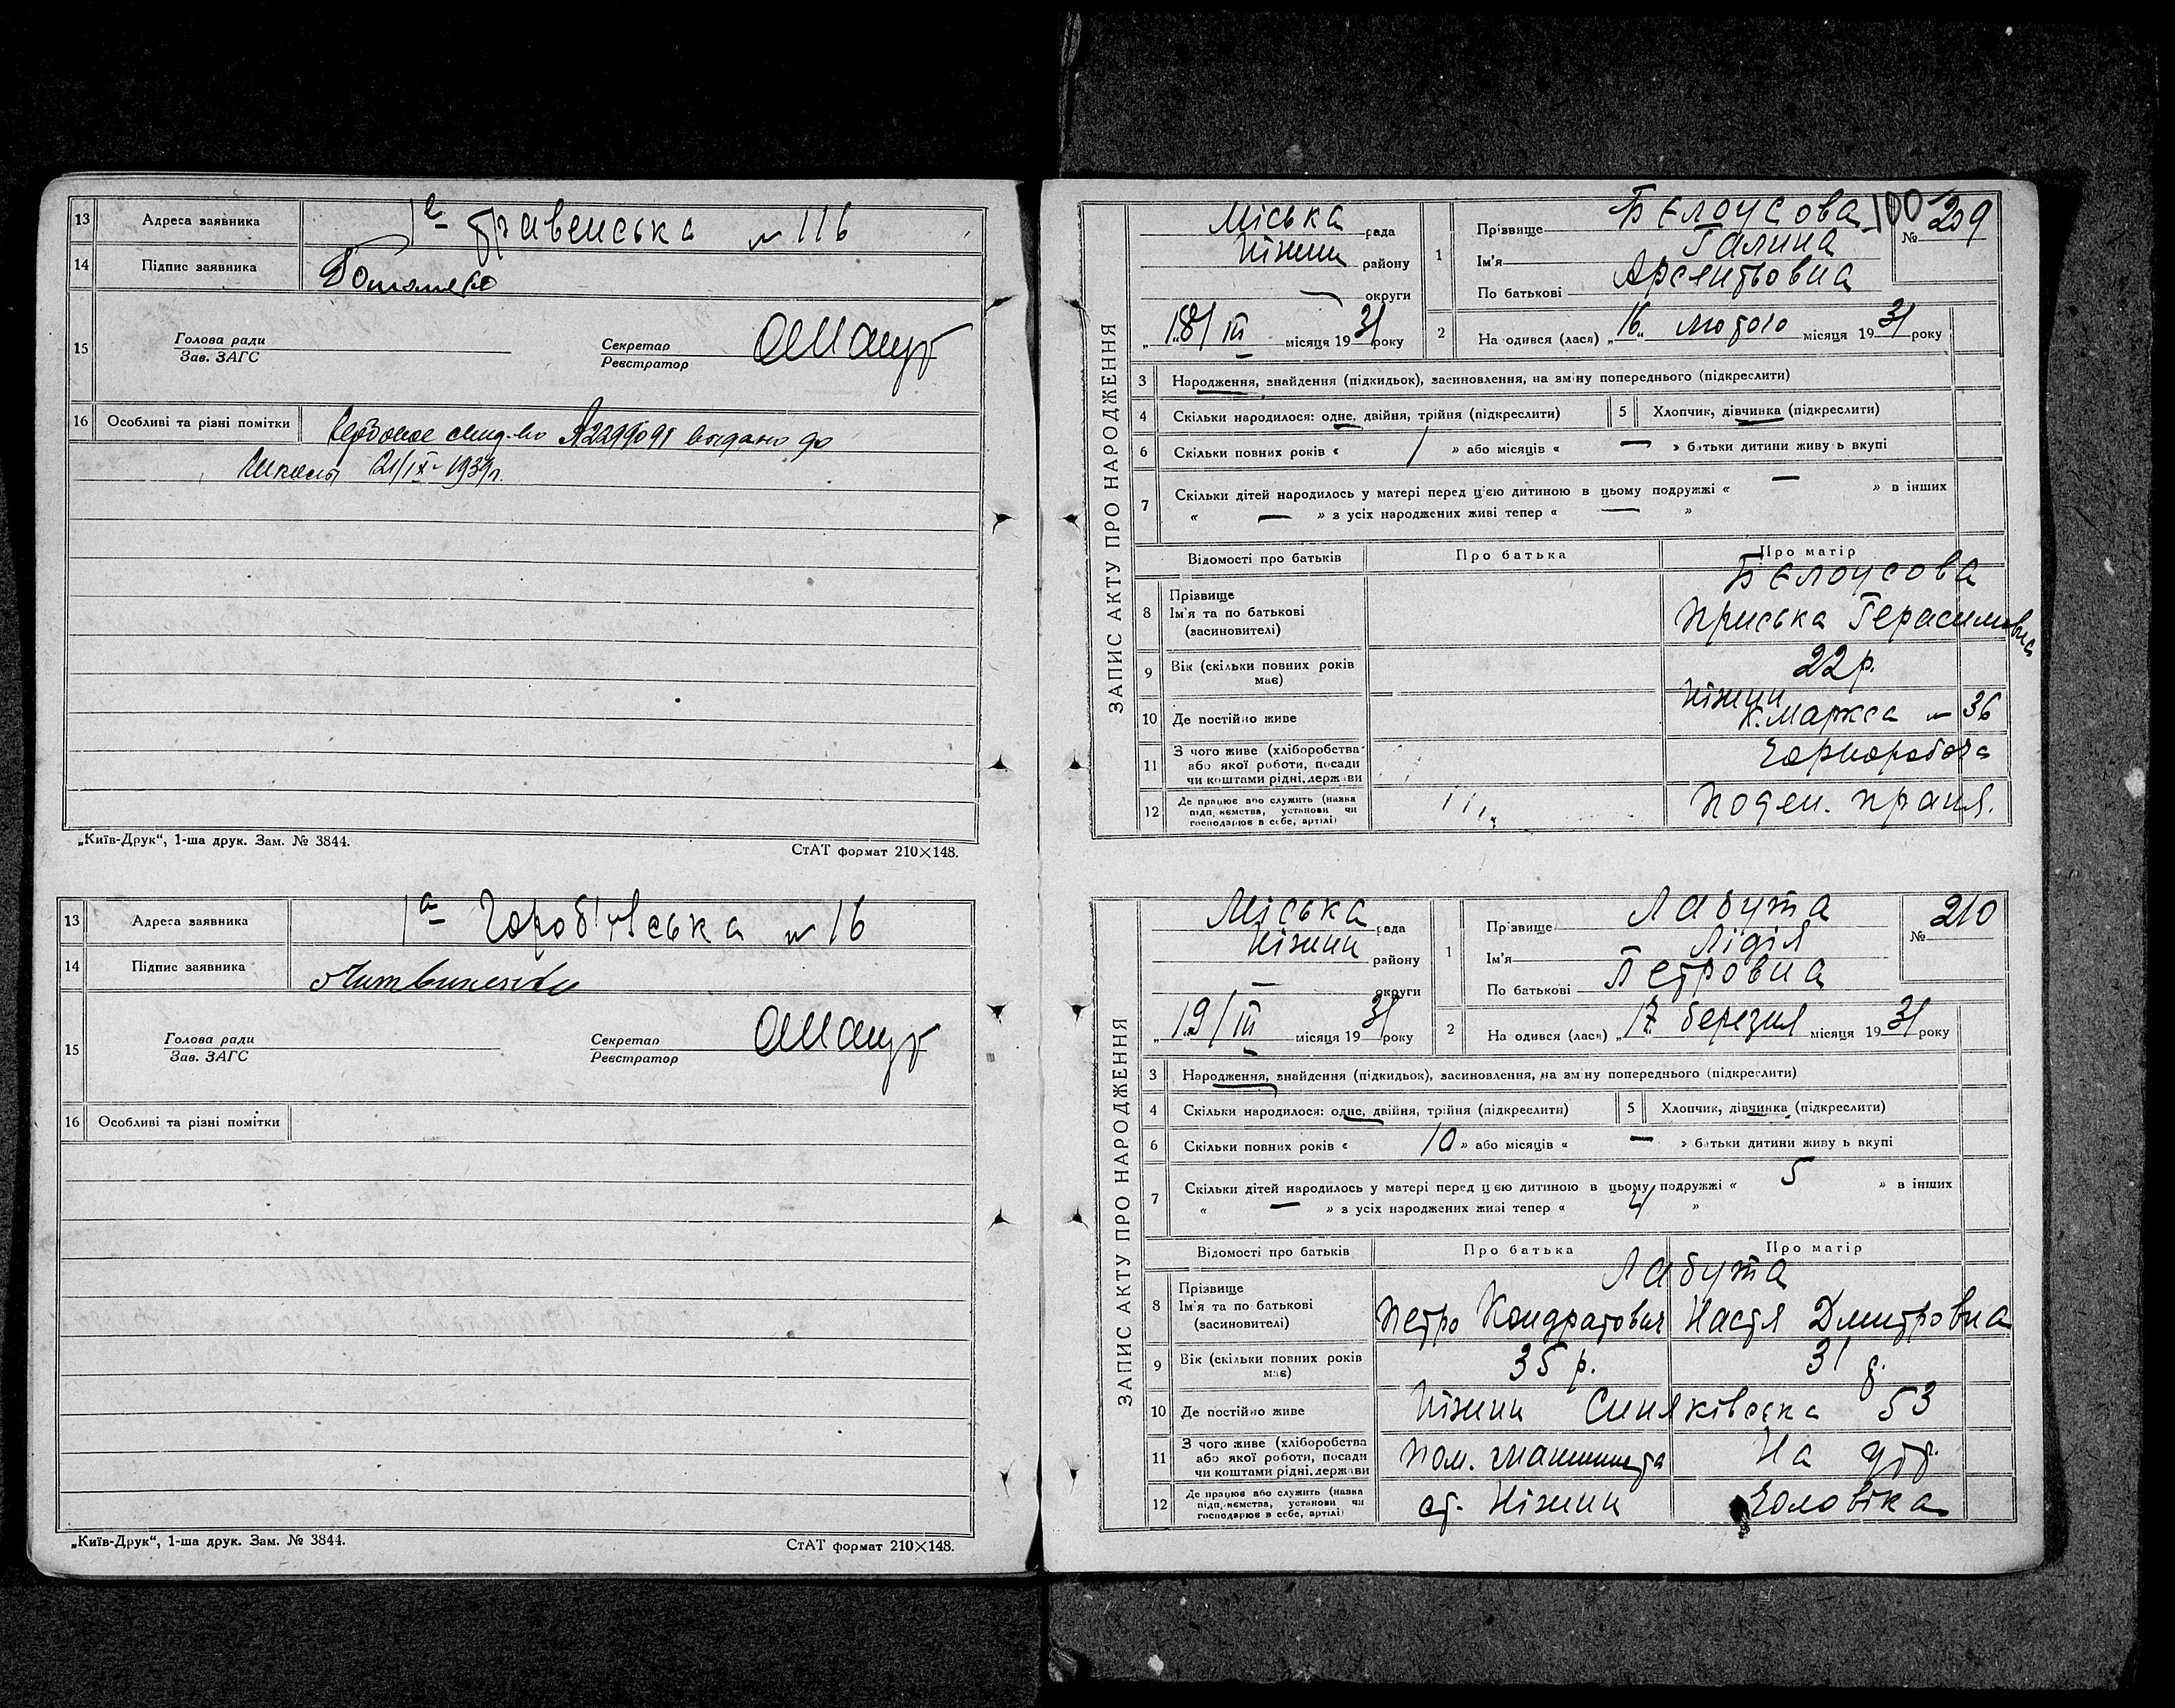 13 Адреса заявника 1а Гравенська № 116
14 Підпис заявника
15 Голова ради
Зав. ЗАГС
Секретар
Реєстратор
16 Особливі та різні помітки выдано до
21/IX-1939р.
„Київ-Друк“, 1-ша друк. Зам. № 3844.
СтАТ формат 210×148.
13 Адреса заявника 1а № 16
14 Підпис заявника Литвиненко
15 Голова ради
Зав. ЗАГС
Секретар
Реєстратор
16 Особливі та різні помітки
„Київ-Друк“, 1-ша друк. Зам. № 3844.
СтАТ формат 210×148.
ЗАПИС АКТУ ПРО НАРОДЖЕННЯ
100
№ 209
Міська рада
Ніжин району
— округи
„18/ III місяця 1931 року
1 Прізвище Бєлоусова
Ім'я Галина
По батькові Арсентьовна
2 Народився (лася) „16„ лютого місяця 1931 року
3 Народження, знайдення (підкидьок), засиновлення, на зміну попереднього (підкреслити)
4 Скільки народилося: одне, двійня, трійня (підкреслити)
5 Хлопчик, дівчинка (підкреслити)
6 Скільки повних років « 1 » або місяців « — » батьки дитини живуть вкупі
7 Скільки дітей народилось у матері перед цією дитиною в цьому подружжі « — » в інших
« — » з усіх народжених живі тепер « — »
Відомості про батьків Про батька Про матір
8 Прізвище
Ім'я та по батькові
(засиновителі)
Бєлоусова
Приська Герасимовна
9 Вік (скільки повних років має) 22 р.
10 Де постійно живе Ніжин
К. Маркса № 36
11 З чого живе (хліборобства
або якої роботи, посади
чи коштами рідні, держави
Чорноробоча
12 Де працює або служить (назва
підприємства, установи чи
господарює в себе, артілі)
Поден. праця.
ЗАПИС АКТУ ПРО НАРОДЖЕННЯ
№ 210
Міська рада
Ніжин району
— округи
„19/ III місяця 1931 року
1 Прізвище Лабута
Ім'я Лідія
По батькові Петровна
2 Народився (лася) „17 березня місяця 1931 року
3 Народження, знайдення (підкидьок), засиновлення, на зміну попереднього (підкреслити)
4 Скільки народилося: одне, двійня, трійня (підкреслити)
5 Хлопчик, дівчинка (підкреслити)
6 Скільки повних років « 10 » або місяців « — » батьки дитини живуть вкупі
7 Скільки дітей народилось у матері перед цією дитиною в цьому подружжі « 5 » в інших
« — » з усіх народжених живі тепер « 4 »
Відомості про батьків Про батька Про матір
8 Прізвище
Ім'я та по батькові
(засиновителі)
Лабута
Петро Кондратович Настя Дмитровна
9 Вік (скільки повних років має) 35 р. 31 р.
10 Де постійно живе Ніжин Синяківська 53
11 З чого живе (хліборобства
або якої роботи, посади
чи коштами рідні, держави
Пом. машиниста На утр.
12 Де працює або служить (назва
підприємства, установи чи
господарює в себе, артілі)
ст. Ніжин Чоловіка